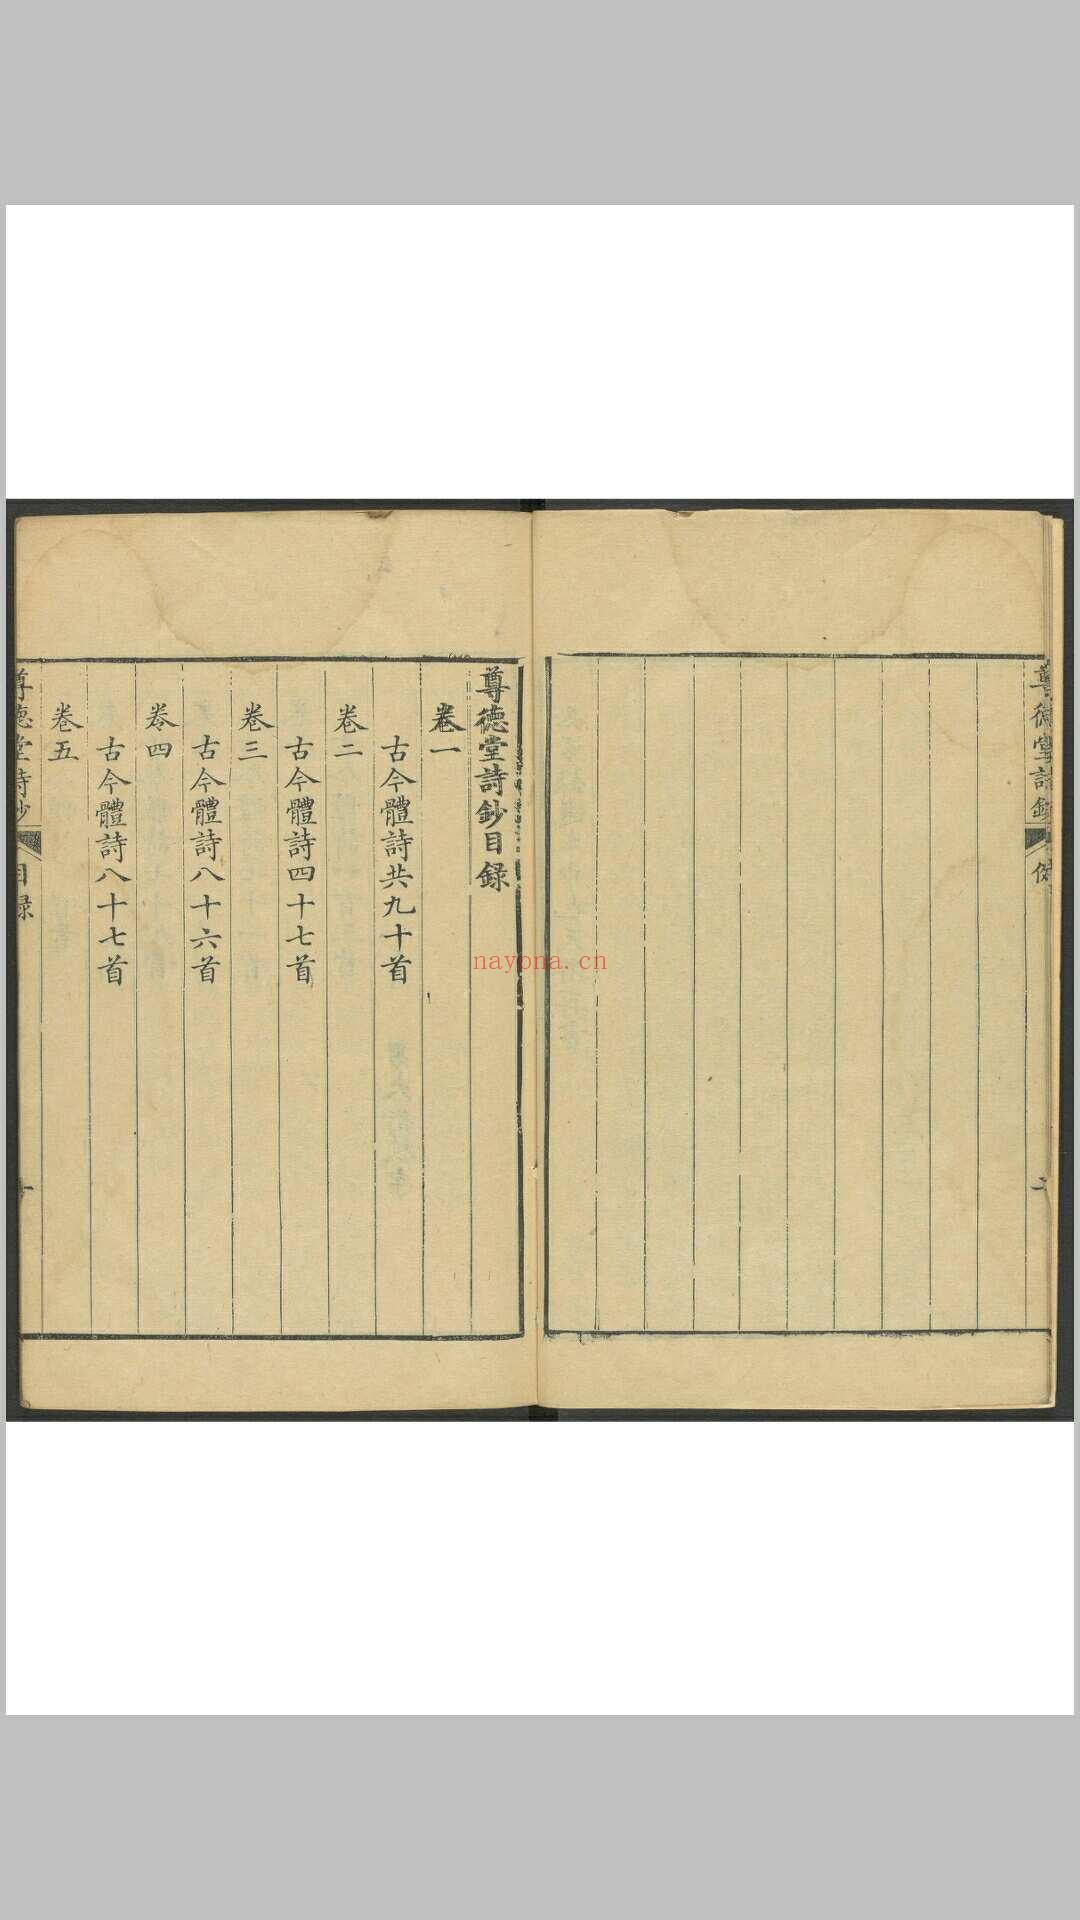 尊德堂詩鈔
二
尊德堂詩鈔目録
卷一
古今體詩共九十首
卷二
古今體詩四十七首
卷三
古今體詩八十六首
卷四
古今體詩八十七首
卷五
尊德堂詩鈔
目録
一
nayona.cn